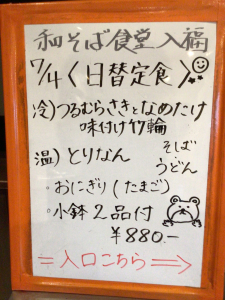 和そば食堂入福
7/4〈日替定食〉
冷)つるむらさきとなめたけ
味付け竹輪
温)とりなん そば
うどん
・おにぎり(たまご)
・小鉢2品付
¥880.-
=入口こちら⇒